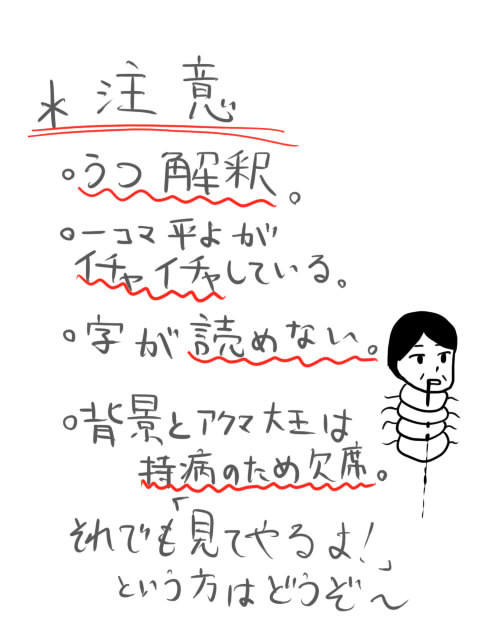 *注意
。うつ解釈。
。一コマ平よが
イチャイチャしている。
。字が読めない。
。背景とアクマ大王は
持病のため欠席。
それでも「見てやるよ!」
という方はどうぞ〜